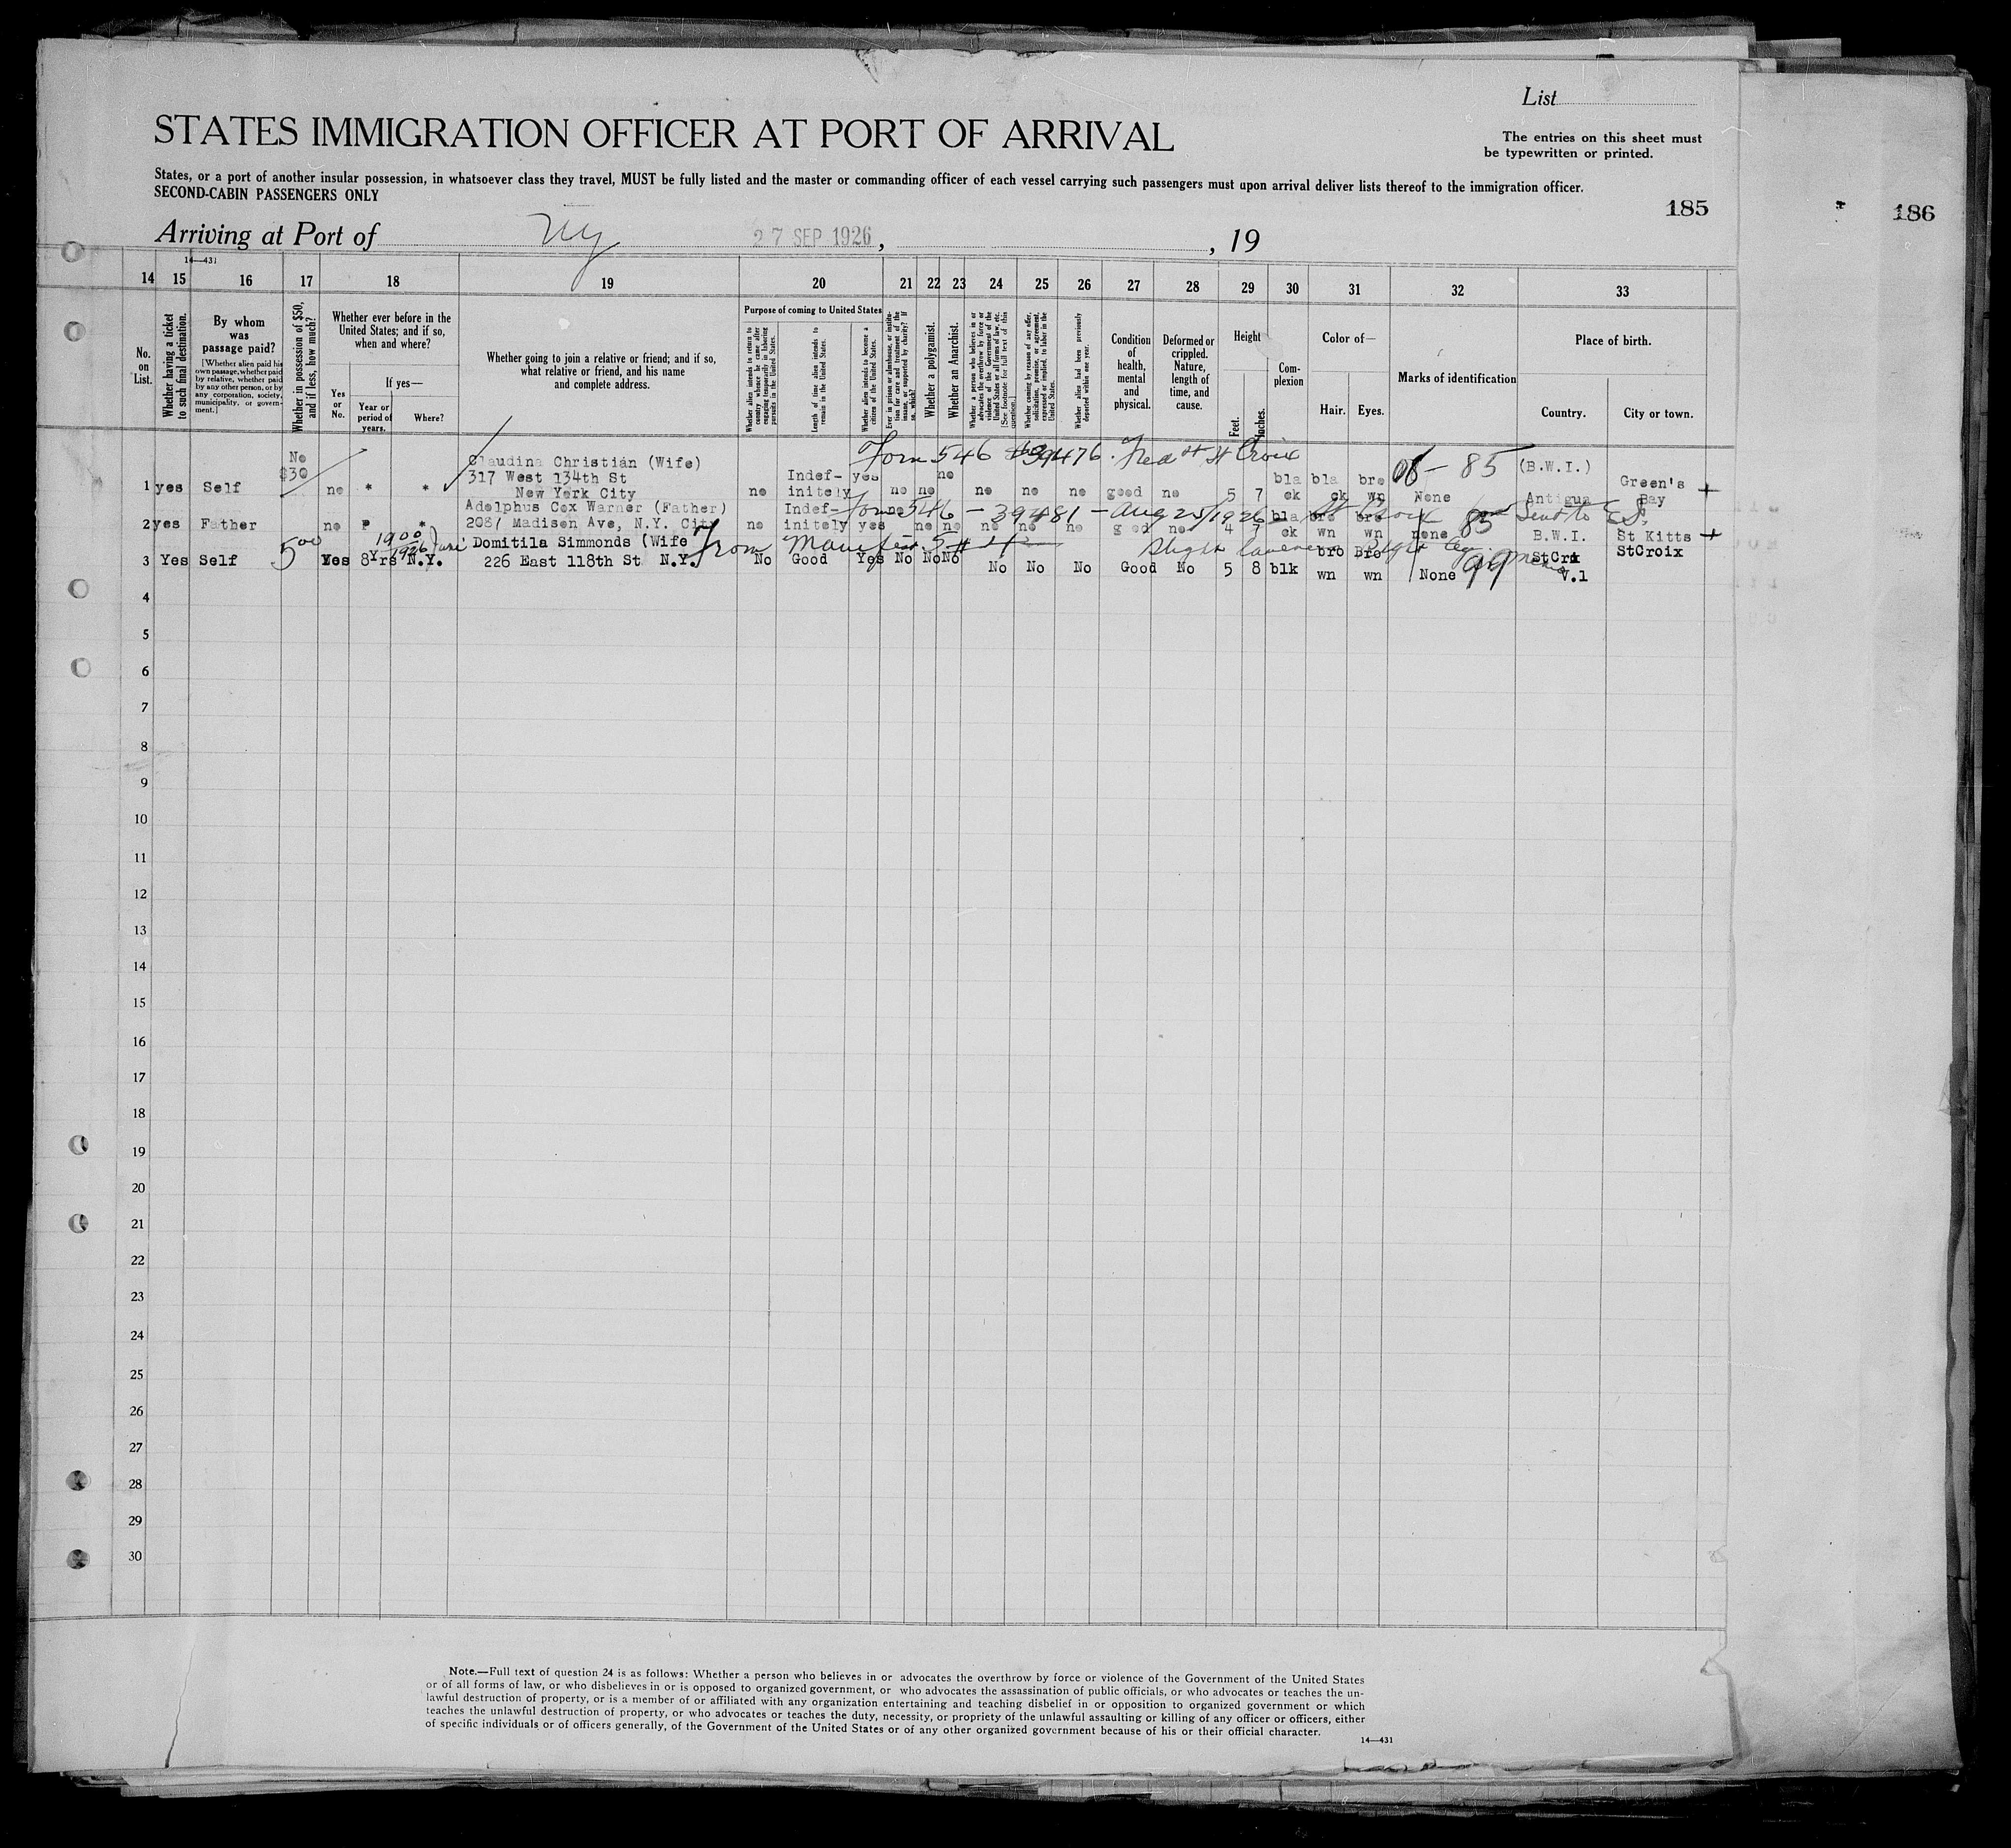 List
STATES IMMIGRATION OFFICER AT PORT OF ARRIVAL
The entries on this sheet must
be typewritten or printed.
States, or a port of another insular possession, in whatsoever class they travel, MUST be fully listed and the master or commanding officer of each vessel carrying such passengers must upon arrival deliver lists thereof to the immigration officer.
SECOND-CABIN PASSENGERS ONLY
185
186
Arriving at Port of NY 27 SEP 1926, , 19
14—431
14 15 16 17 18 19 20 21 22 23 24 25 26 27 28 29 30 31 32 33
No. on List.
Whether having a ticket to such final destination.
By whom was passage paid?
[Whether alien paid his own passage, whether paid by relative, whether paid by any other person, or by any corporation, society, municipality, or government.]
Whether in possession of $50, and if less, how much?
Whether ever before in the United States; and if so, when and where?
Yes or No.
If yes—
Year or period of years.
Where?
Whether going to join a relative or friend; and if so, what relative or friend, and his name and complete address.
Purpose of coming to United States
Whether alien intends to return to country whence he came after engaging temporarily in laboring pursuits in the United States.
Length of time alien intends to remain in the United States.
Whether alien intends to become a citizen of the United States.
Ever in prison or almshouse, or institution for care and treatment of the insane, or supported by charity? If so, which?
Whether a polygamist.
Whether an Anarchist.
Whether a person who believes in or advocates the overthrow by force or violence of the Government of the United States or all forms of law, etc. [See footnote for full text of this question.]
Whether coming by reason of any offer, solicitation, promise, or agreement, expressed or implied, to labor in the United States.
Whether alien had been previously deported within one year.
Condition of health, mental and physical.
Deformed or crippled. Nature, length of time, and cause.
Height
Feet. Inches.
Complexion
Color of—
Hair. Eyes.
Marks of identification
Place of birth.
Country. City or town.
Form 546 39476. Fred St St Croix 85
1 yes Self No $30 no * * Claudina Christian (Wife) 317 West 134th St New York City no Indefinitely yes no no no no no no good no 5 7 black black brown None (B.W.I.) Antigua Green's Bay +
Form 546 - 39481 - Aug 25/1926 St Croix 85 Send to
2 yes Father no * Adolphus Cox Warner (Father) 2081 Madison Ave, N.Y. City no Indefinitely yes no no no no no no good no 4 7 black brown brown none B.W.I. St Kitts +
From Manifest Slight
3 Yes Self 500 Yes 8Yrs 1900 1926 N.Y. Domitila Simmonds (Wife 226 East 118th St N.Y. No Good Yes No No No No No No Good No 5 8 blk brown Brown None 99 StCrx V.1 StCroix
4
5
6
7
8
9
10
11
12
13
14
15
16
17
18
19
20
21
22
23
24
25
26
27
28
29
30
Note.—Full text of question 24 is as follows: Whether a person who believes in or advocates the overthrow by force or violence of the Government of the United States
or of all forms of law, or who disbelieves in or is opposed to organized government, or who advocates the assassination of public officials, or who advocates or teaches the un-
lawful destruction of property, or is a member of or affiliated with any organization entertaining and teaching disbelief in or opposition to organized government or which
teaches the unlawful destruction of property, or who advocates or teaches the duty, necessity, or propriety of the unlawful assaulting or killing of any officer or officers, either
of specific individuals or of officers generally, of the Government of the United States or of any other organized government because of his or their official character.
14—431